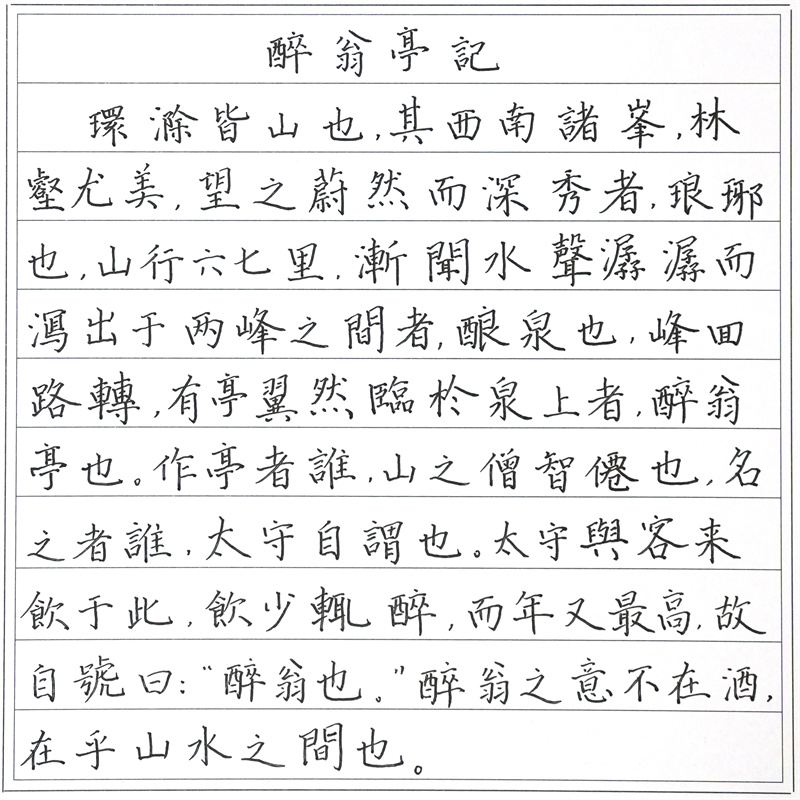 醉翁亭記
環滁皆山也,其西南諸峯,林
壑尤美,望之蔚然而深秀者,琅琊
也,山行六七里,漸聞水聲潺潺而
瀉出于两峰之間者,酿泉也,峰回
路轉,有亭翼然臨於泉上者,醉翁
亭也。作亭者誰,山之僧智僊也,名
之者誰,太守自謂也。太守與客来
飲于此,飲少輒醉,而年又最高,故
自號曰:“醉翁也。”醉翁之意不在酒,
在乎山水之間也。